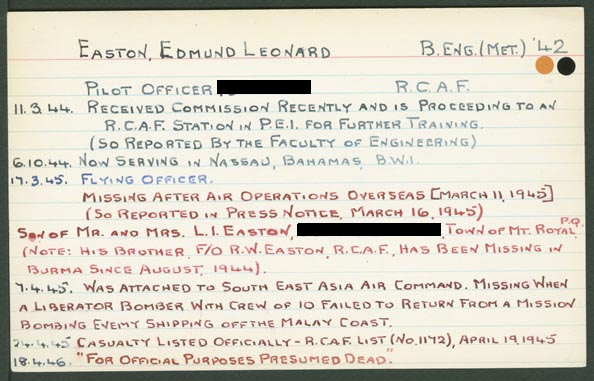 EASTON, EDMUND LEONARD B.ENG.(MET.) '42
PILOT OFFICER R.C.A.F.
11.3.44. RECEIVED COMMISSION RECENTLY AND IS PROCEEDING TO AN
R.C.A.F. STATION IN P.E.I. FOR FURTHER TRAINING.
(SO REPORTED BY THE FACULTY OF ENGINEERING)
6.10.44. NOW SERVING IN NASSAU, BAHAMAS, B.W.I.
17.3.45. FLYING OFFICER.
MISSING AFTER AIR OPERATIONS OVERSEAS [MARCH 11, 1945]
(SO REPORTED IN PRESS NOTICE, MARCH 16, 1945)
SON OF MR. AND MRS. L.I. EASTON, TOWN OF MT. ROYAL, P.Q.
(NOTE: HIS BROTHER, F/O R.W. EASTON, R.C.A.F., HAS BEEN MISSING IN
BURMA SINCE AUGUST, 1944).
7.4.45. WAS ATTACHED TO SOUTH EAST ASIA AIR COMMAND. MISSING WHEN
A LIBERATOR BOMBER WITH CREW OF 10 FAILED TO RETURN FROM A MISSION
BOMBING ENEMY SHIPPING OFF THE MALAY COAST.
24.4.45 CASUALTY LISTED OFFICIALLY - R.C.A.F. LIST (NO. 1172), APRIL 19, 1945
18.4.46. "FOR OFFICIAL PURPOSES PRESUMED DEAD."